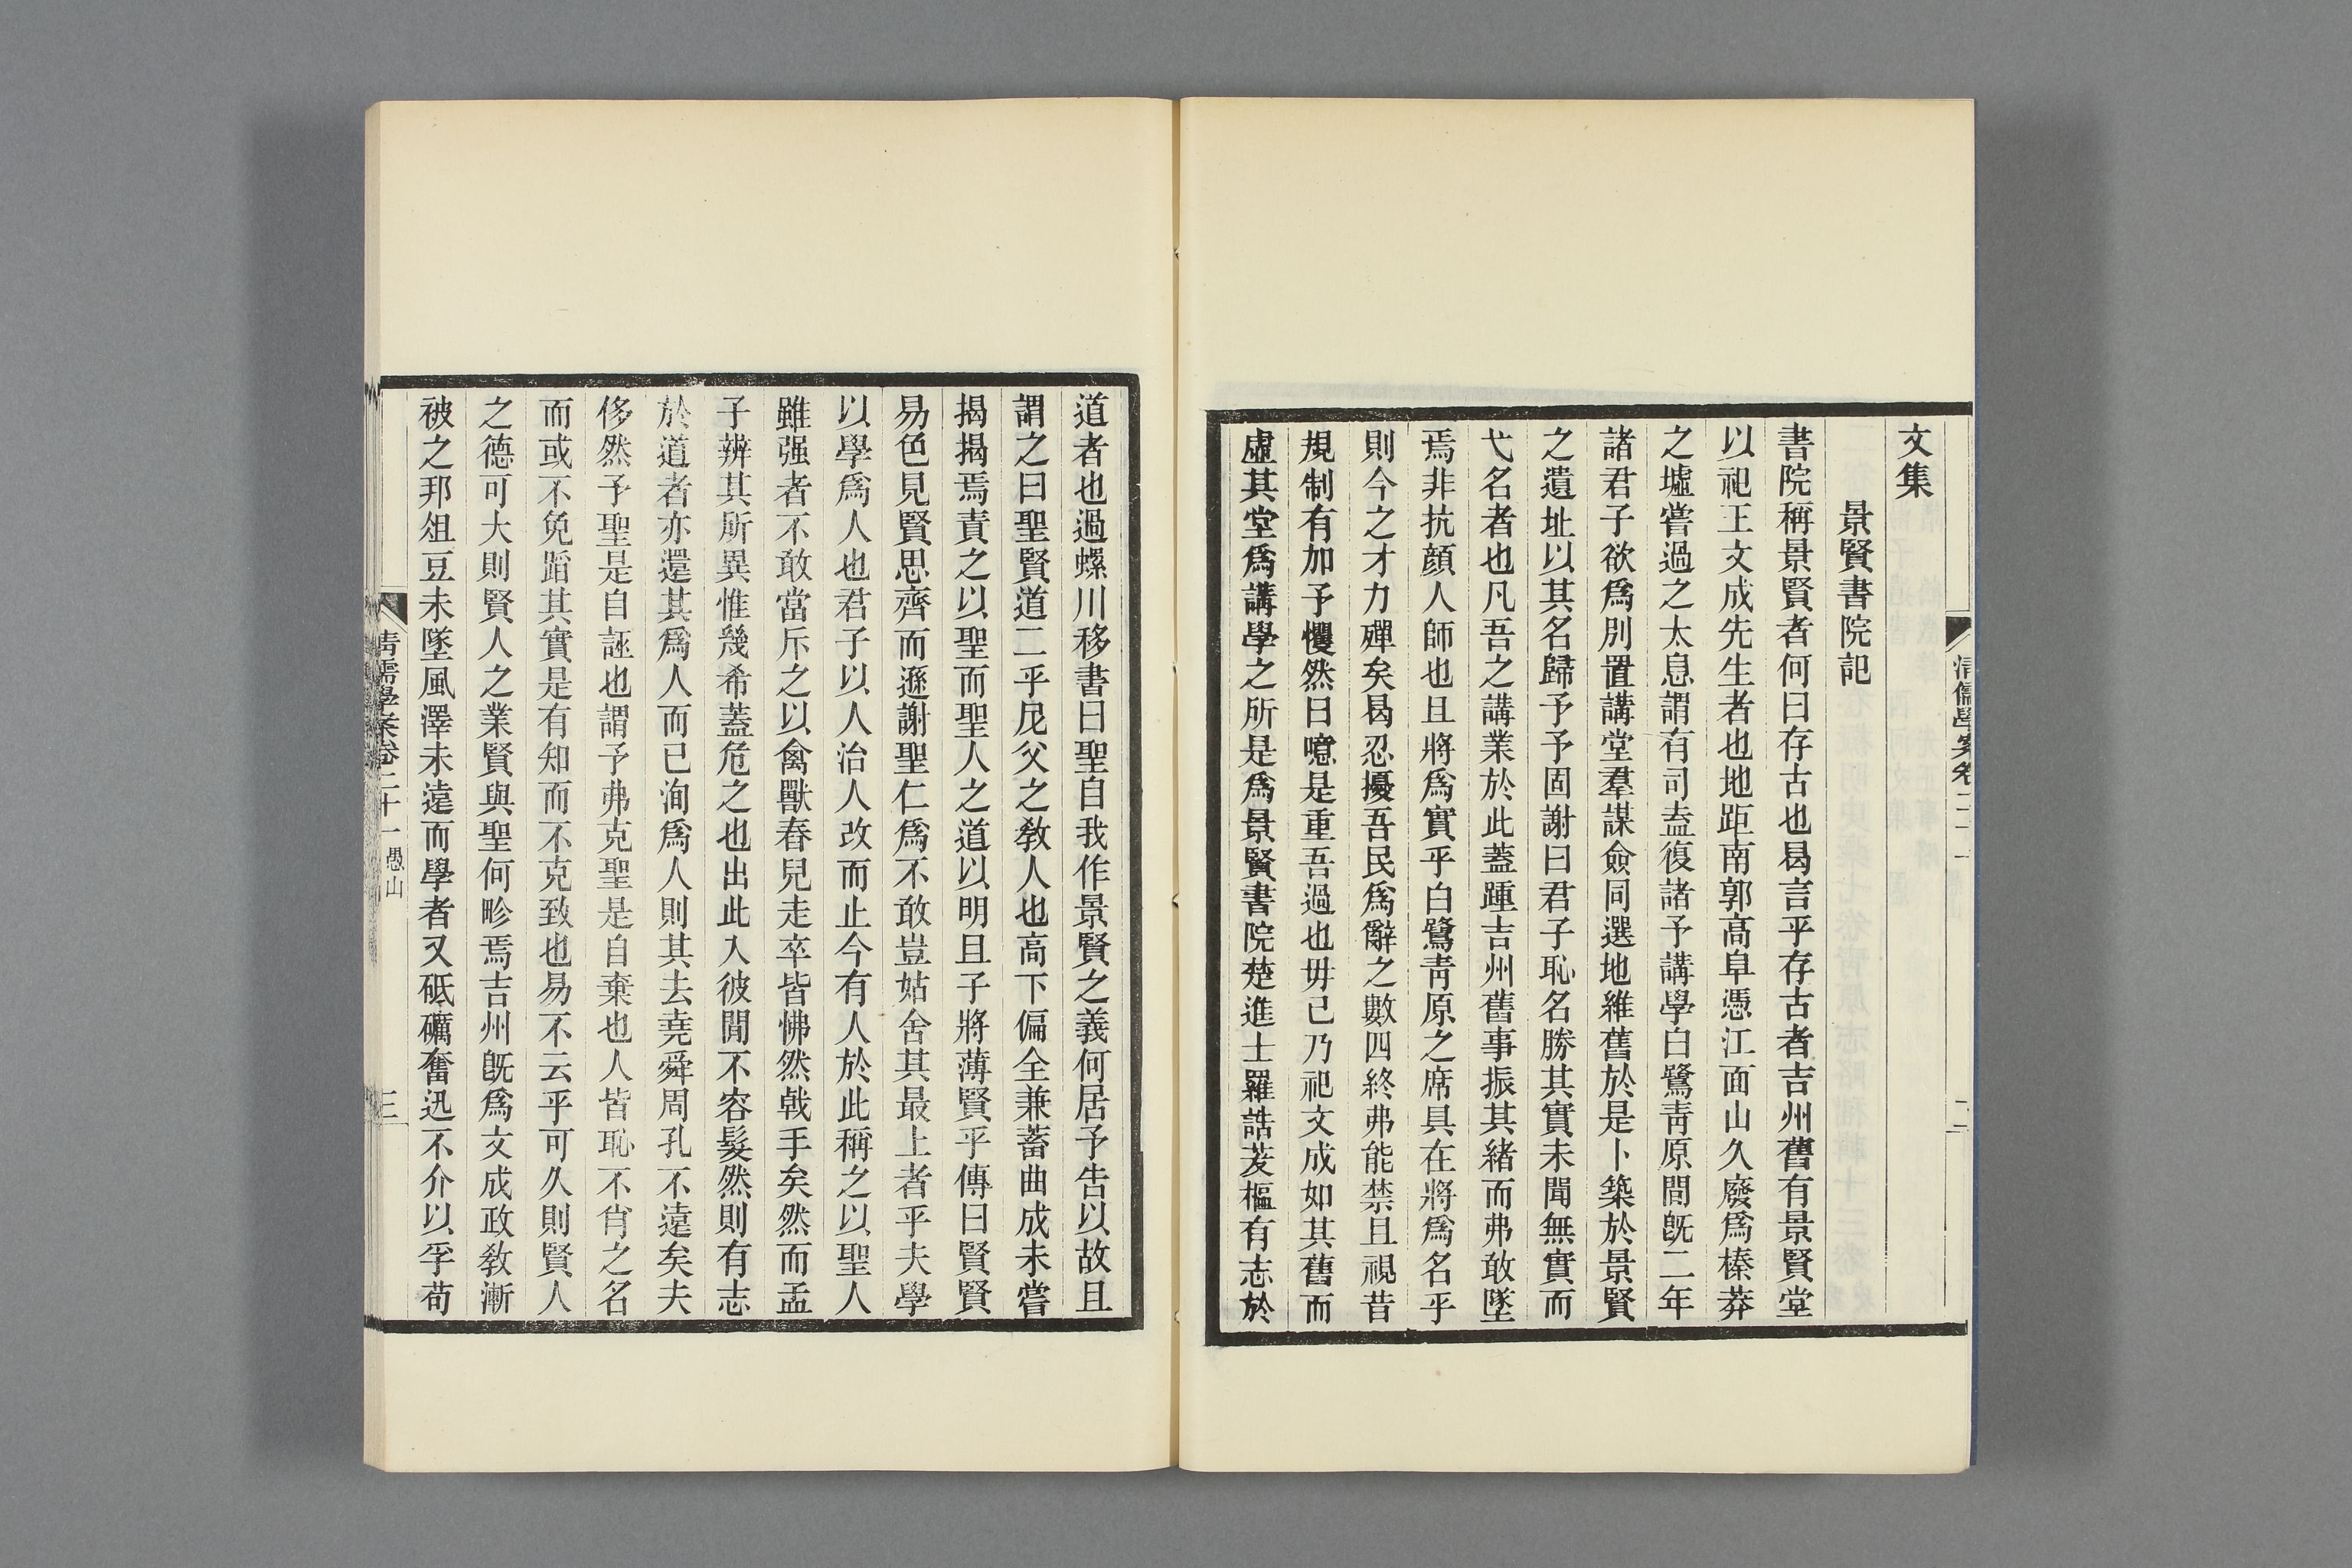 文集
景賢書院記
書院稱景賢者何曰存古也曷言乎存古者吉州舊有景賢堂
以祀王文成先生者也地距南郭高阜憑江面山久廢爲榛莽
之墟嘗過之太息謂有司盍復諸予講學白鷺靑原間旣二年
諸君子欲爲別置講堂羣謀僉同選地維舊於是卜築於景賢
之遺址以其名歸予予固謝曰君子恥名勝其實未聞無實而
弋名者也凡吾之講業於此蓋踵吉州舊事振其緒而弗敢墜
焉非抗顏人師也且將爲實乎白鷺靑原之席具在將爲名乎
則今之才力殫矣曷忍擾吾民爲辭之數四終弗能禁且視昔
規制有加予戄然曰噫是重吾過也毋已乃祀文成如其舊而
虛其堂爲講學之所是爲景賢書院楚進士羅誥茇樞有志於
道者也過螺川移書曰聖自我作景賢之義何居予告以故且
謂之曰聖賢道二乎尼父之敎人也高下偏全兼蓄曲成未嘗
揭揭焉責之以聖而聖人之道以明且子將薄賢乎傳曰賢賢
易色見賢思齊而遜謝聖仁爲不敢豈姑舍其最上者乎夫學
以學爲人也君子以人治人改而止今有人於此稱之以聖人
雖强者不敢當斥之以禽獸舂兒走卒皆怫然戟手矣然而孟
子辨其所異惟幾希蓋危之也出此入彼間不容髮然則有志
於道者亦還其爲人而已洵爲人則其去堯舜周孔不遠矣夫
侈然予聖是自誣也謂予弗克聖是自棄也人皆恥不肖之名
而或不免蹈其實是有知而不克致也易不云乎可久則賢人
之德可大則賢人之業賢與聖何畛焉吉州旣爲文成政敎漸
被之邦俎豆未墜風澤未遠而學者又砥礪奮迅不介以孚苟
清儒學案卷二十一
二
清儒學案卷二十一 愚山
三